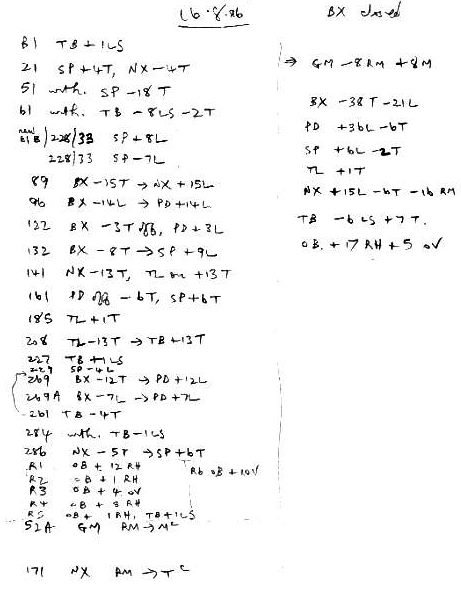 16.8.86
BX closed
B1 TB + 1LS
21 SP + 4T, NX - 4T
51 with. SP - 18T
61 with. TB - 8LS - 2T
new
B1B/228/33 SP + 8L
228/33 SP - 7L
89 BX - 15T → NX + 15L
96 BX - 14L → PD + 14L
122 BX - 3T off, PD + 3L
132 BX - 8T → SP + 9L
141 NX - 13T, TL on + 13T
161 PD off - 6T, SP + 6T
185 TL + 1T
208 TL - 13T → TB + 13T
227 TB + 1LS
229 SP - 4L
269 BX - 12T → PD + 12L
269A BX - 7L → PD + 7L
261 TB - 4T
284 with. TB - 1LS
286 NX - 5T → SP + 6T
R1 OB + 12 RH
R2 OB + 1 RH
R3 OB + 4 OV
R4 OB + 3 RH
R5 OB + 1 RH, TB + 1LS
R6 OB + 1OV
52A GM RM → M
171 NX RM → T
→ GM - 8RM + 8M
BX - 38T - 21L
PD + 36L - 6T
SP + 6L - 2T
TL + 1T
NX + 15L - 6T - 16 RM
TB - 6LS + 7T.
OB. + 17 RH + 5 OV